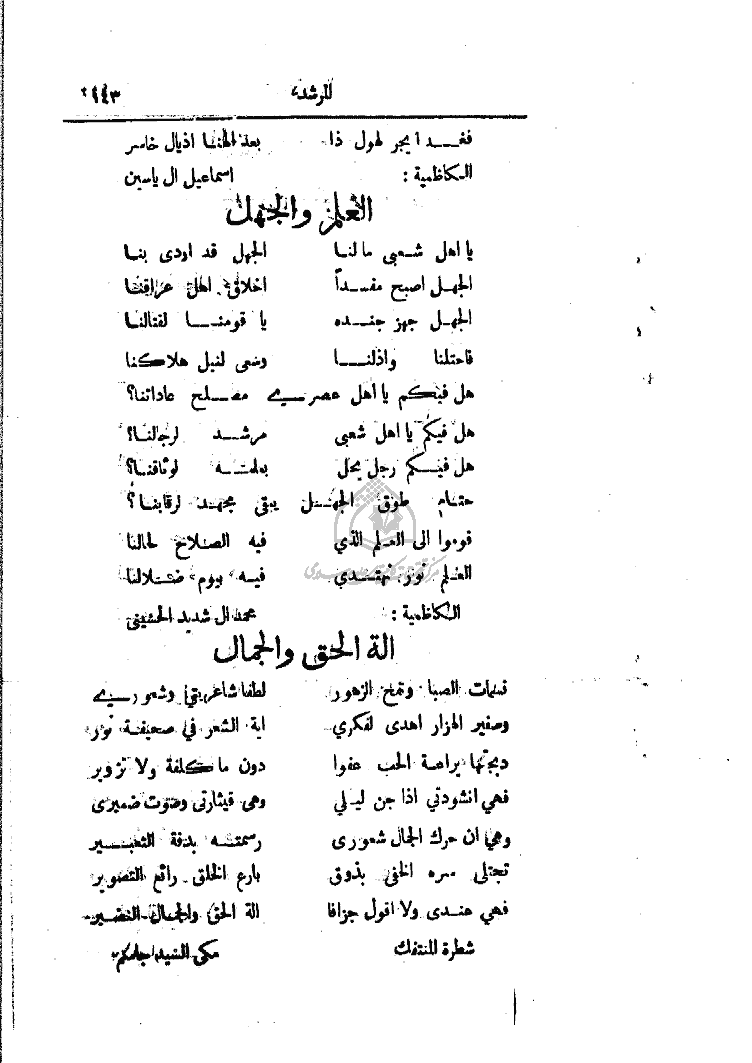 المرشد ٤٤٣
فغدا يجر لهول ذا بعد الهنا اذيال خاسر
الكاظمية : اسماعيل ال ياسين
العلم والجهل
يا اهل شعبي مالنا الجهل قد اودى بنا
الجهل اصبح مفسداً اخلاق اهل عراقنا
الجهل جهز جنده يا قومنا لقتالنا
فاحتلنا واذلنا وسعى لنيل هلاكنا
هل فيكم يا اهل عصري مصلح عاداتنا؟
هل فيكم يا اهل شعبي مرشد لرجالنا؟
هل فيكم رجل يحل بعلمه لوثاقنا؟
حتام طوق الجهل يبقى مجهد لرقابنا؟
قوموا الى العلم الذي فيه الصلاح لحالنا
العلم نور نهتدي فيه بيوم ضلالنا
الكاظمية : محمد ال شديد الحسيني
الة الحق والجمال
نسمات الصبا ونفح الزهور لطفا شاعريتي وشعوري
وصفير الهزار اهدى لفكري اية الشعر في صحيفة نور
دبجتها يراعة الحب عفوا دون ما كلفة ولا تزوير
فهي انشودتي اذا جن ليلي وهي قيثارتي وصوت ضميري
وهي ان حرك الجمال شعوري رسمته بدقة التعبير
تجتلي سره الخفي بذوق بارع الخلق رائع التصوير
فهي عندي ولا اقول جزافا الة الحق والجمال النضير
شطرة المنتفك مكي السيد جاسم